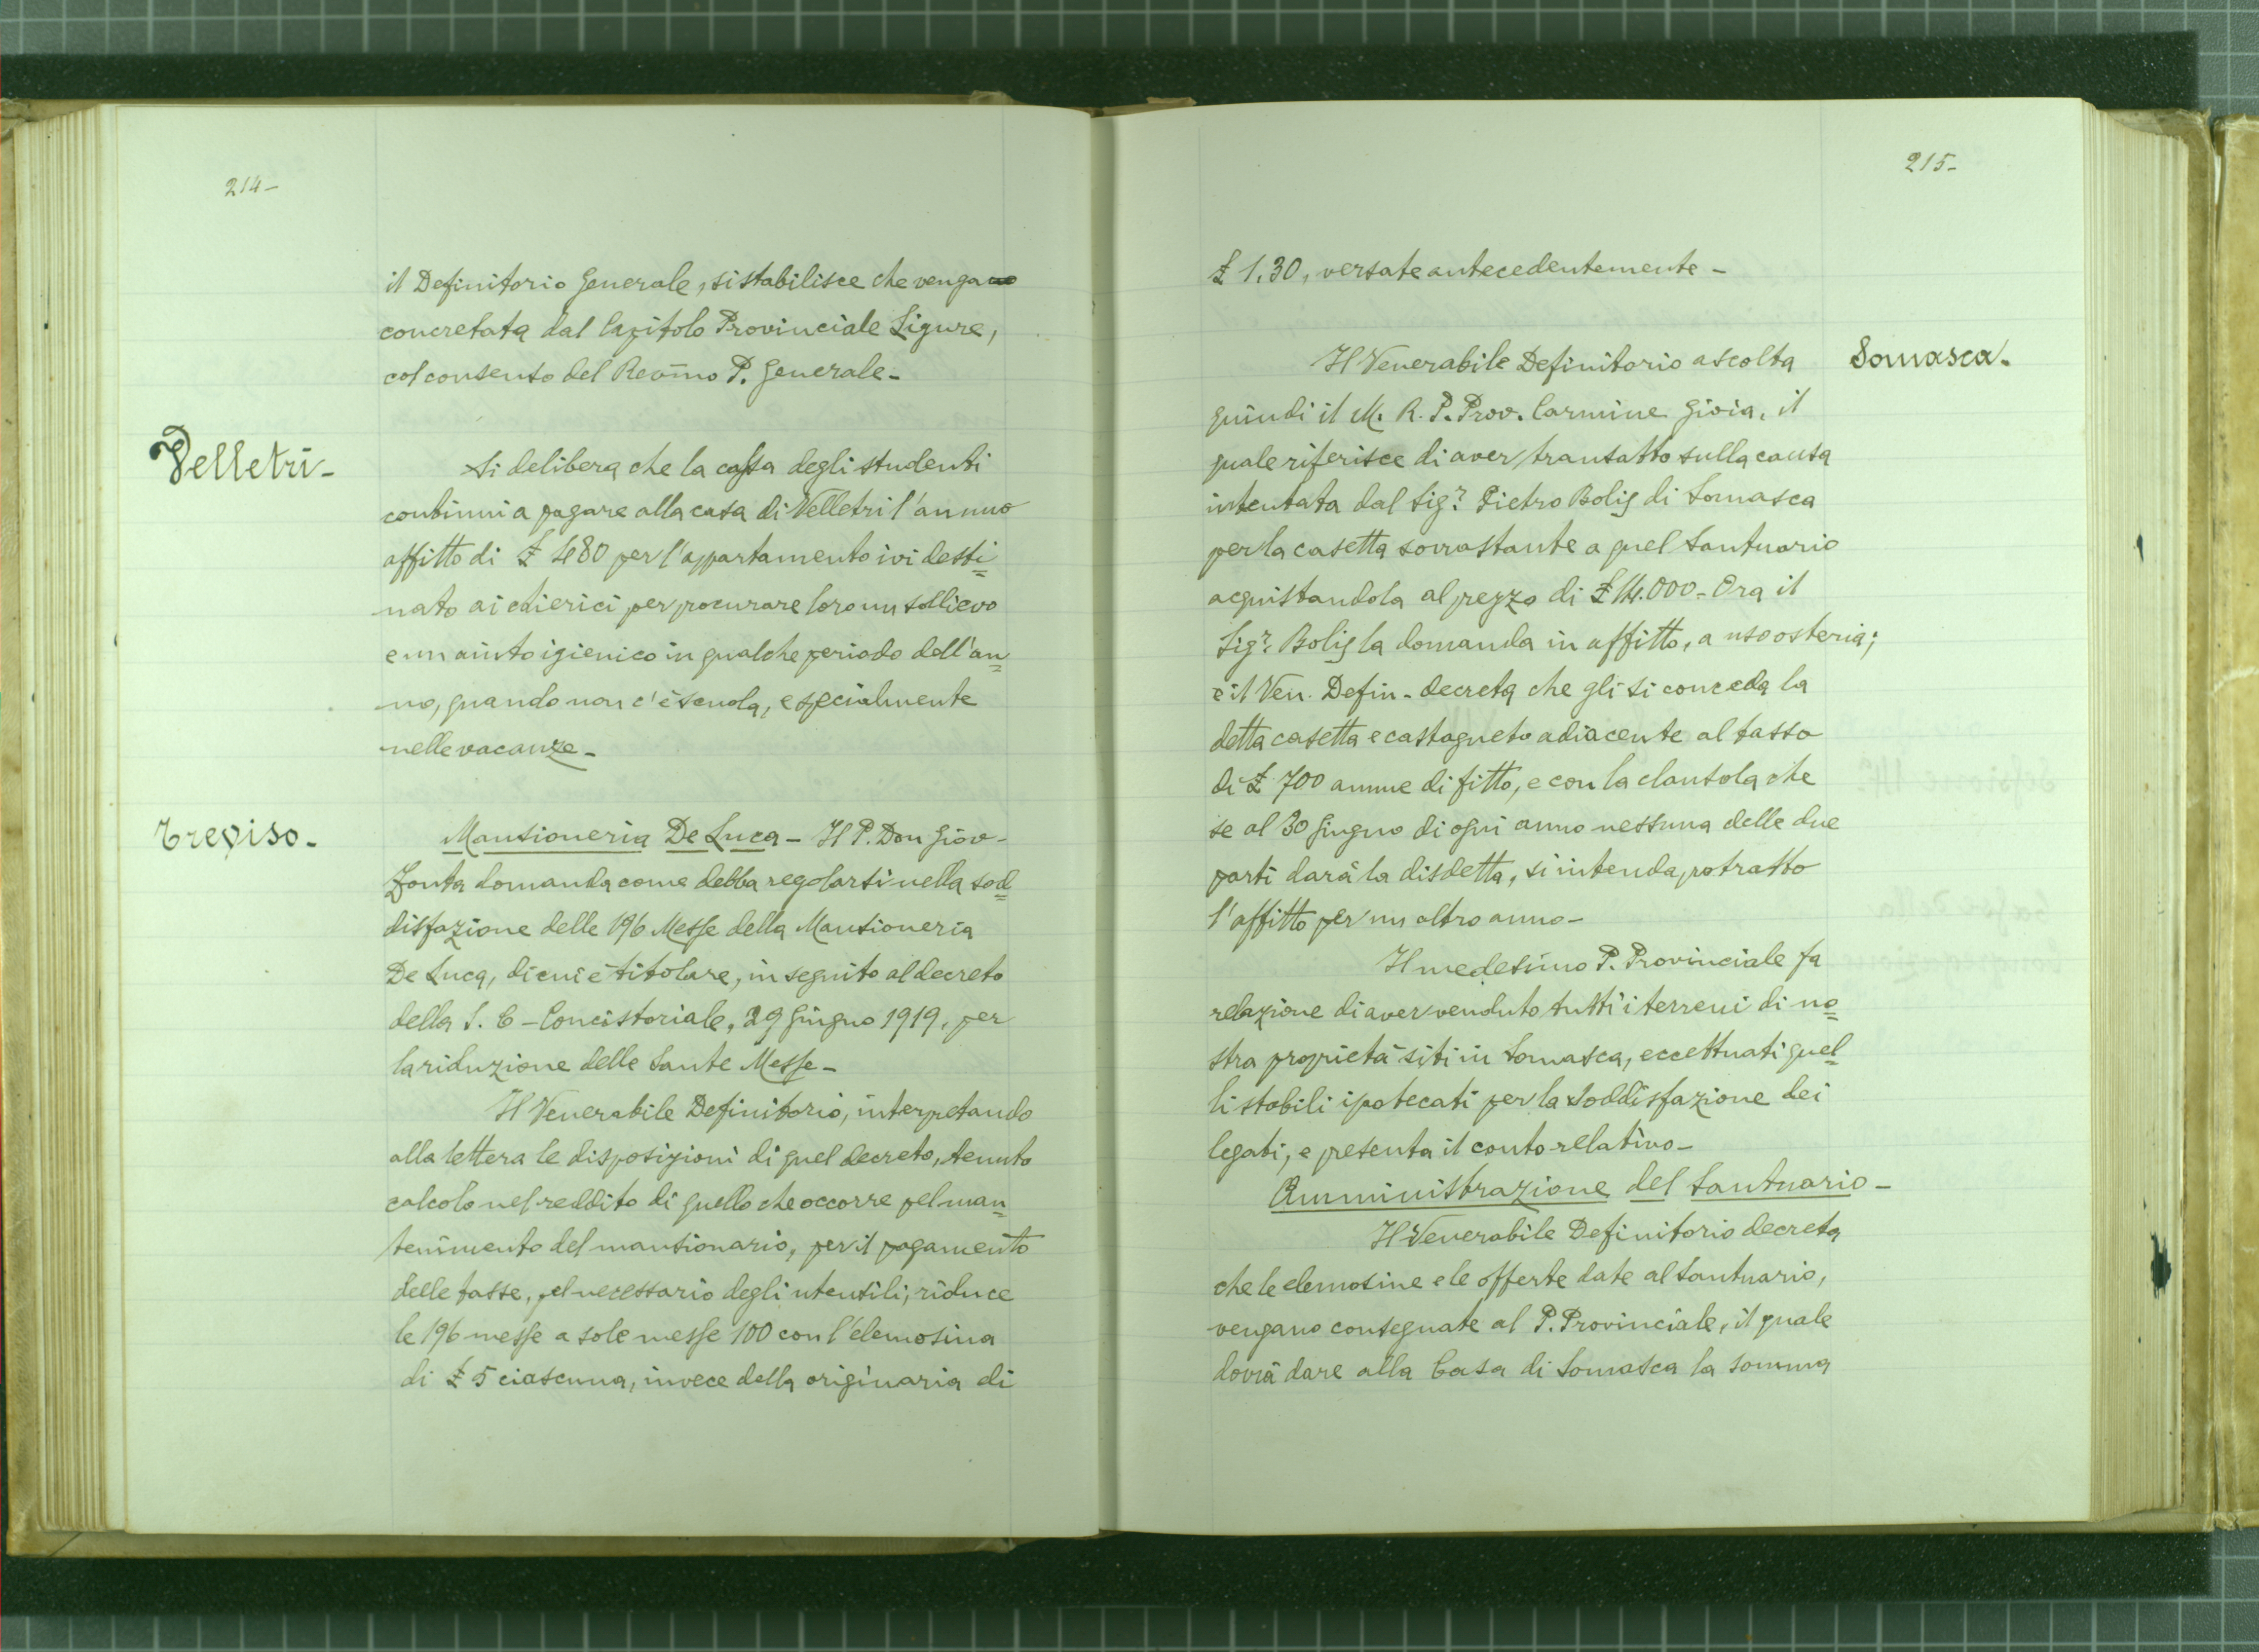 214-
il Definitorio Generale, si stabilisce che venga
concretata dal Capitolo Provinciale Ligure,
col consenso del Revmo P. Generale-
Velletri-
Si delibera che la cassa degli studenti
continui a pagare alla casa di Velletri l'annuo
affitto di £ 480 per l'appartamento ivi desti=
nato ai chierici per procurare loro un sollievo
e un aiuto igienico in qualche periodo dell'an=
no, quando non c'è scuola, e specialmente
nelle vacanze-
Treviso.
Mansioneria De Luca - Il P. Don Giov-
Zonta domanda come debba regolarsi nella sod=
disfazione delle 196 Messe della Mansioneria
De Luca, di cui è titolare, in seguito al decreto
della S. C - Concistoriale, 29 Giugno 1919, per
la riduzione delle Sante Messe-
Il Venerabile Definitorio, interpretando
alla lettera le disposizioni di quel decreto, tenuto
calcolo nel reddito di quello che occorre pel man=
tenimento del mansionario, per il pagamento
delle tasse, pel necessario degli utensili, riduce
le 196 messe a sole messe 100 con l'elemosina
di £ 5 ciascuna, invece della originaria di
215-
£ 1.30, versate antecedentemente-
Somasca.
Il Venerabile Definitorio ascolta
quindi il M. R. P. Prov. Carmine Gioia, il
quale riferisce di aver transatto sulla causa
intentata dal Sigr Pietro Bolis di Somasca
per la casetta sovrastante a quel Santuario
acquistandola al prezzo di £ 14.000- Ora il
Sigr Bolis la domanda in affitto, a uso osteria;
e il Ven. Defin- decreta che gli si conceda la
detta casetta e castagneto adiacente al tasso
di £ 700 annue di fitto, e con la clausola che
se al 30 Giugno di ogni anno nessuna delle due
parti darà la disdetta, si intenda protratto
l'affitto per un altro anno-
Il medesimo P. Provinciale fa
relazione di aver venduto tutti i terreni di no=
stra proprietà siti in Somasca, eccettuati quel=
li stabili ipotecati per la soddisfazione dei
legati, e presenta il conto relativo-
Amministrazione del Santuario-
Il Venerabile Definitorio decreta
che le elemosine e le offerte date al Santuario,
vengano consegnate al P. Provinciale, il quale
dovrà dare alla Casa di Somasca la somma